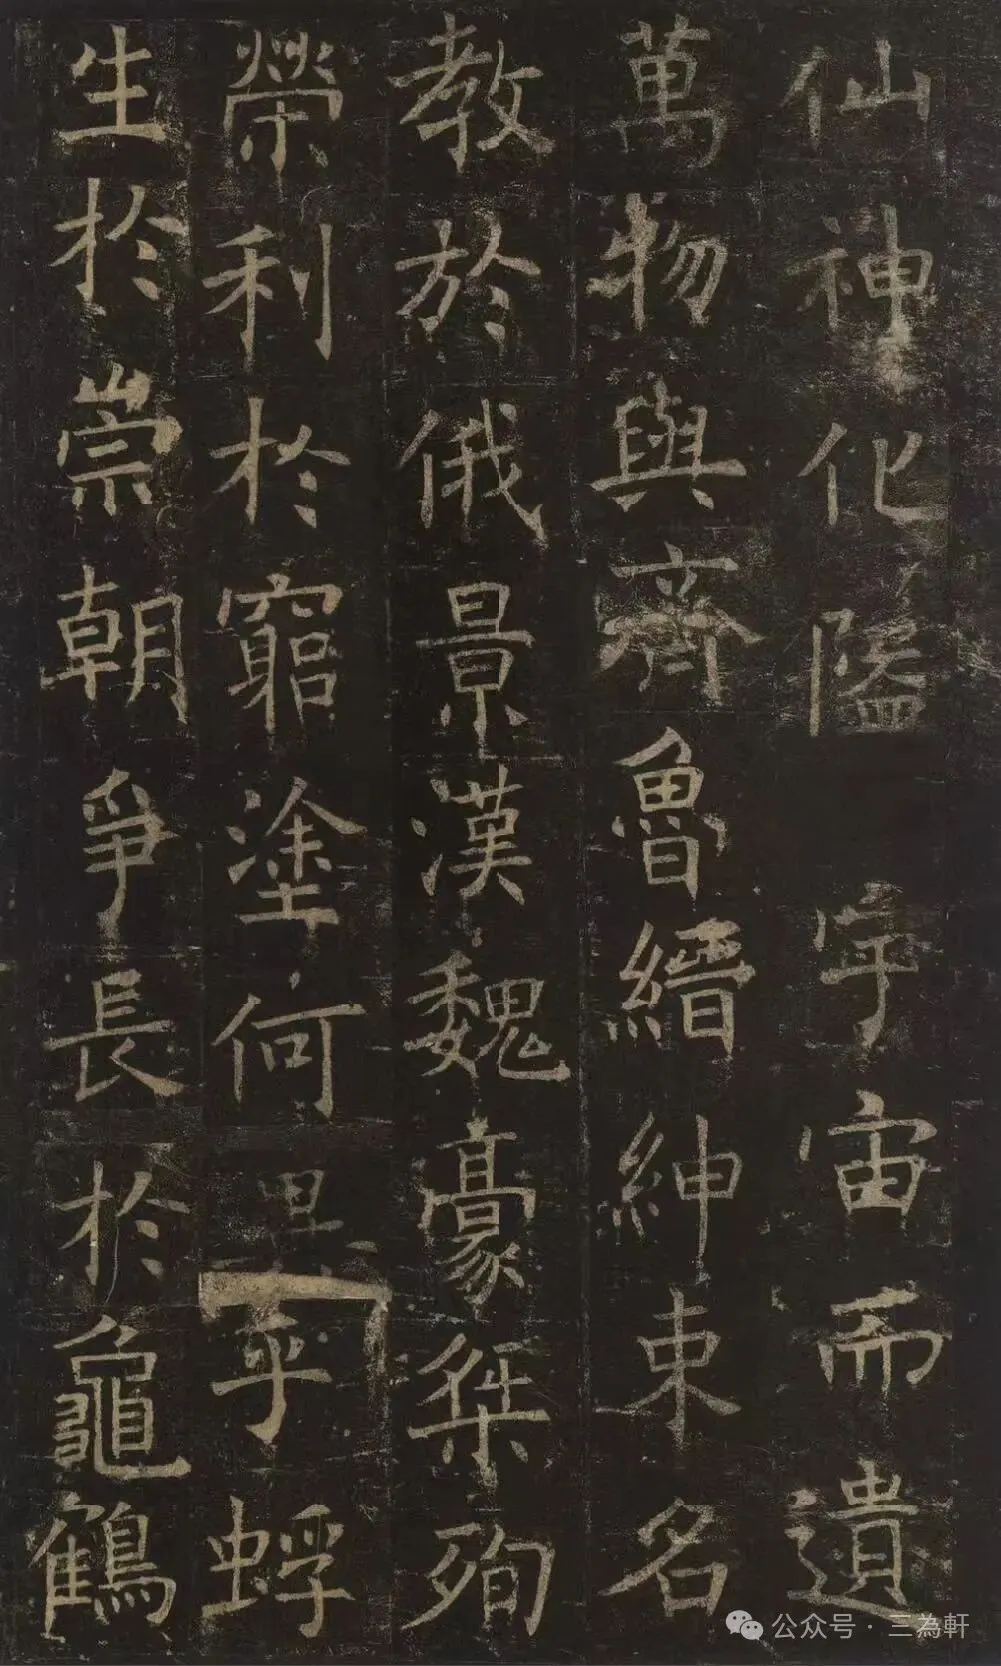 仙神化隘宇宙而遺
萬物與齊魯縉紳束名
教於俄景漢魏豪桀殉
榮利於窮塗何異乎蜉
生於崇朝爭長於龜鶴
公众号·三為軒